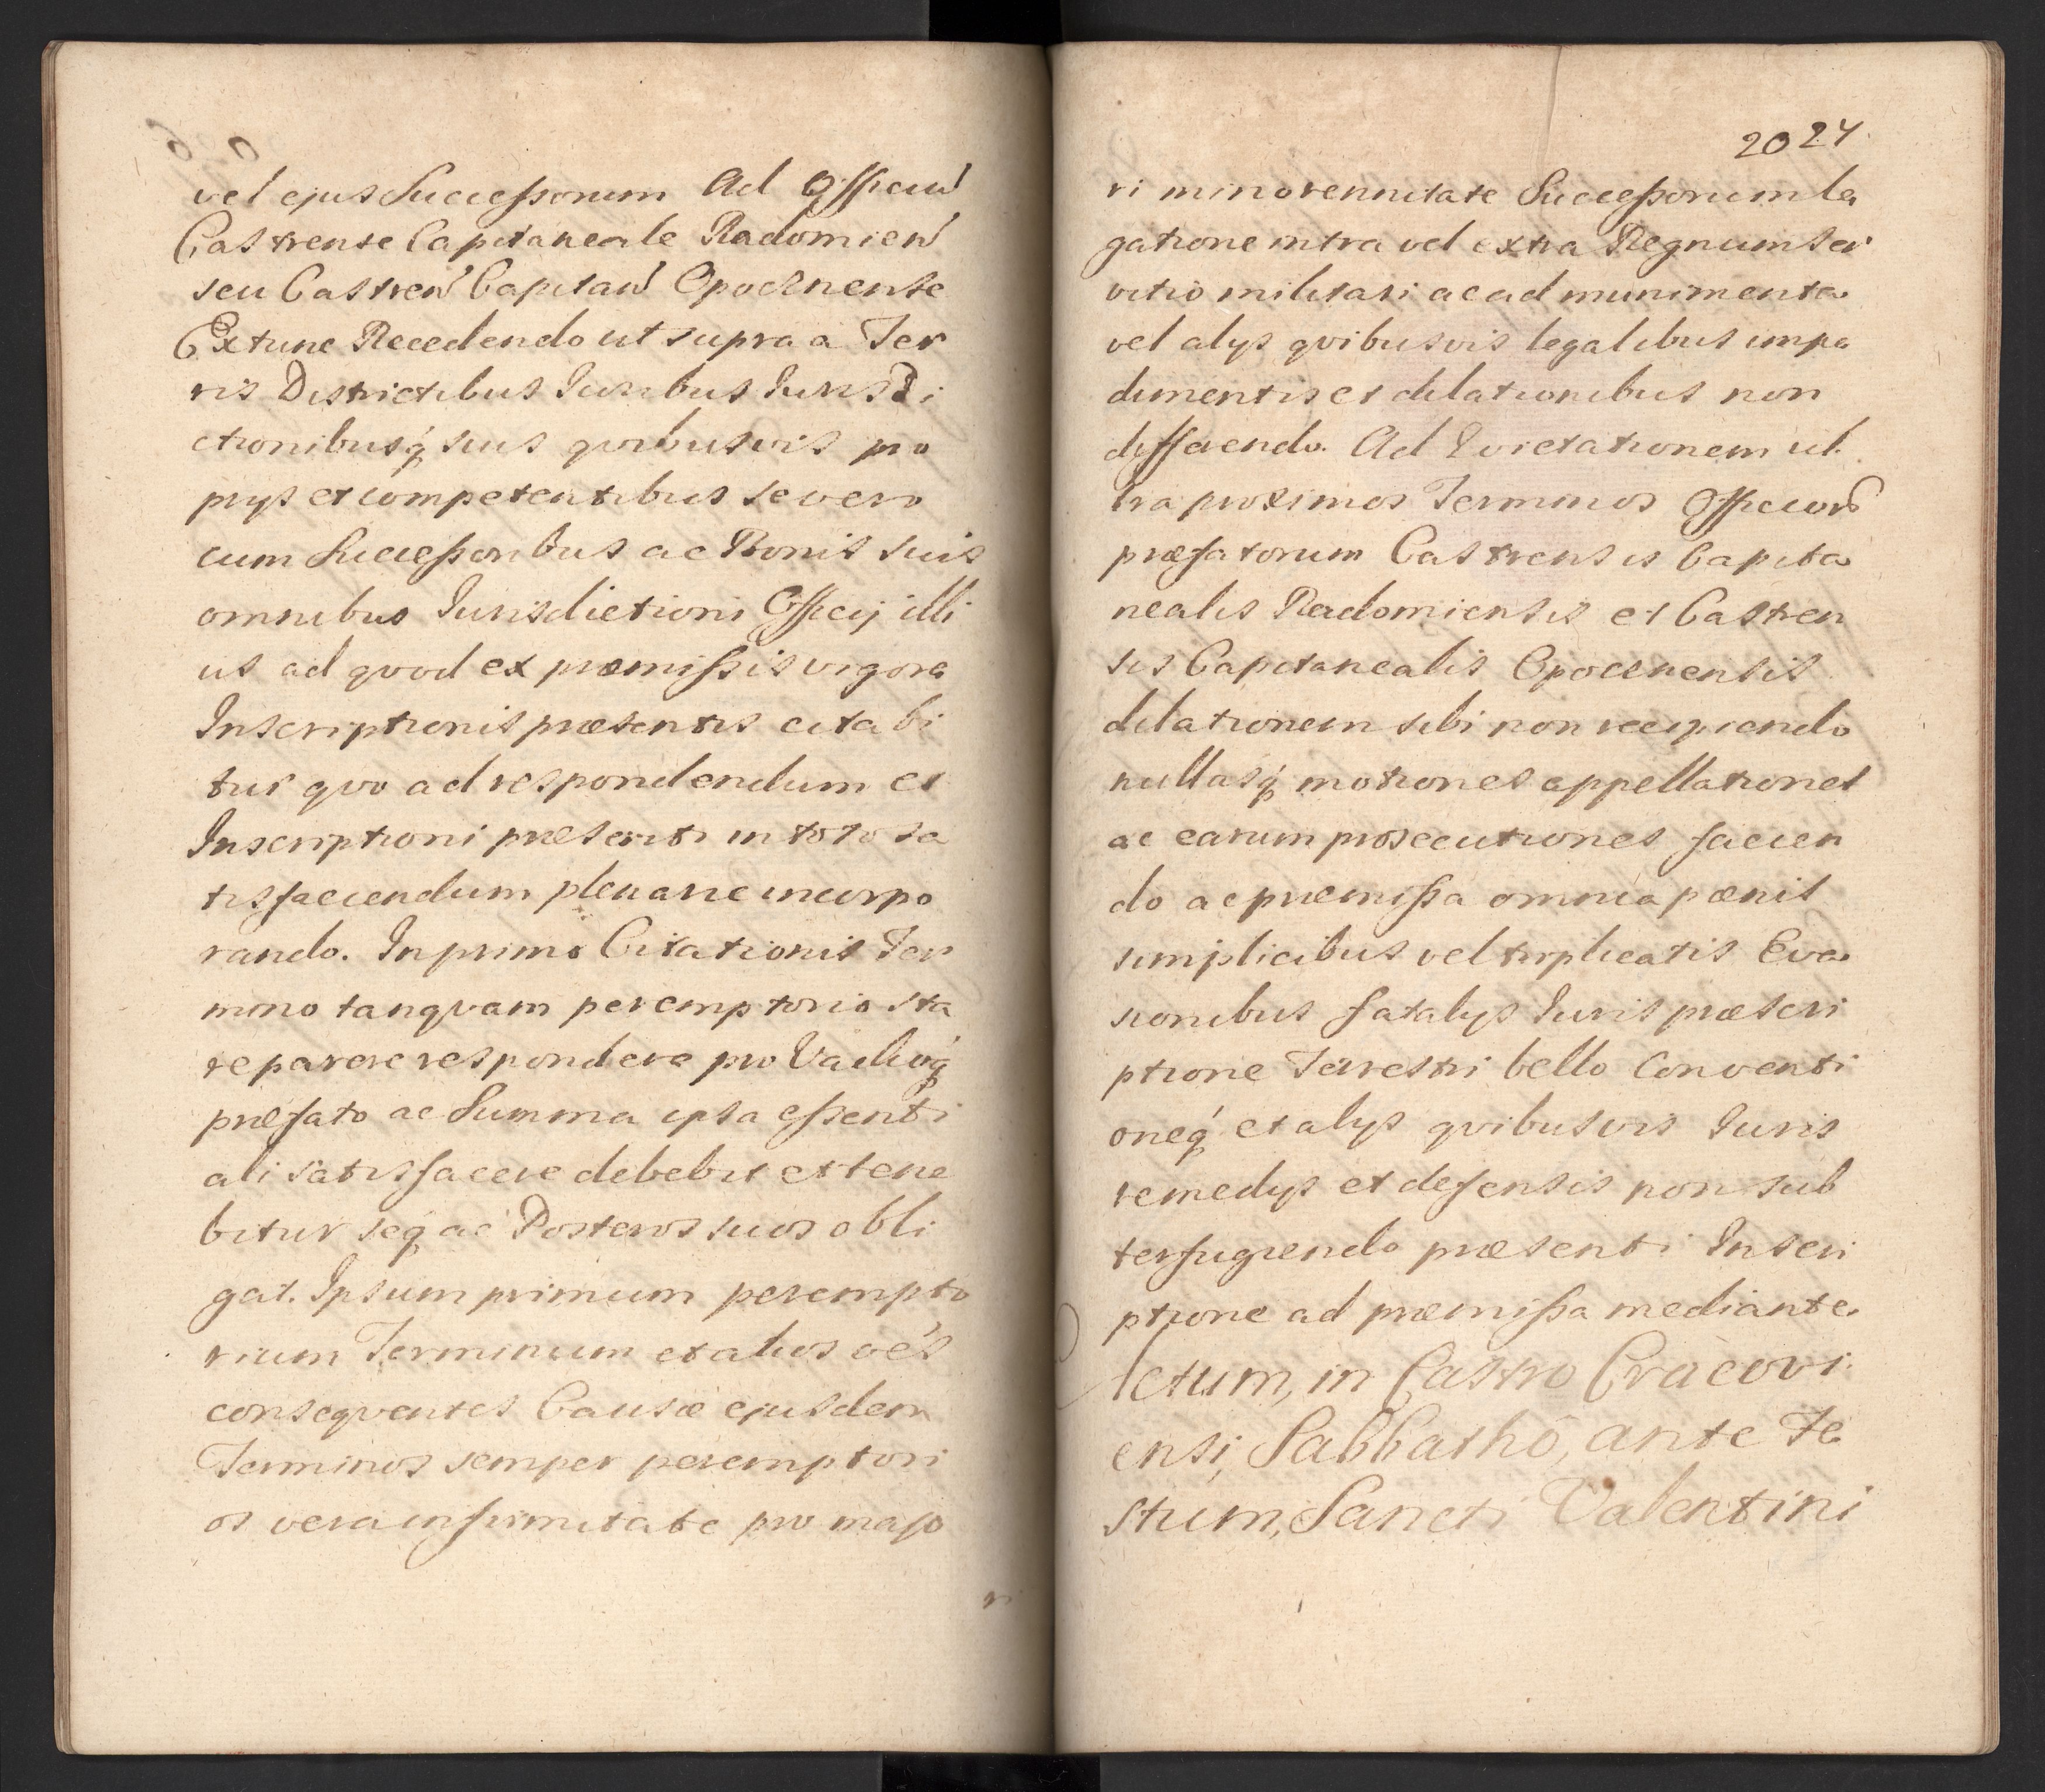 vel ejus Successorum Ad Officiu
Castrense Capitaneale Radomien
seu Castren Capitan Opocznense
Extunc Recedendo ut supra a Ter
ris Districtibus Juribus Jurisdi
ctionibusq suis qvibusvis pro
prijs et competentibus se vero
cum Successoribus ac Bonis suis
omnibus Jurisdictioni Officij illi
us ad qvod ex præmissis vigore
Inscriptionis præsentis citabi
tur qvo ad respondendum et
Inscriptioni præsenti in toto sa
tisfaciendum plenarie incorpo
rando. In primo Citationis Ter
mino tanqvam peremptorio sta
re parere respondere pro Vadioq
præfato ac Summa ipsa essenti
ali satisfacere debebit et tene
bitur seq ac Posteros suos obli
gat. Ipsum primum perempto
rium Terminum et alios oes
conseqventes Causæ ejusdem
Terminos semper peremptori
os vera infirmitate pro majo
ri
2024
ri minorennitate Successorum le
gatione intra vel extra Regnum ser
vitio militari ac ad munimenta
vel alys qvibusvis legalibus impe
dimentis et dilationibus non
differendo. Ad Evictationem ul
tra proximos Terminos Officior
præfatorum Castrensis Capita
nealis Radomiensis et Castren
sis Capitanealis Opocznensis
dilationem sibi non recipiendo
nullasq motiones appellationes
ac earum prosecutiones facien
do ac præmissa omnia pœnis
simplicibus vel triplicatis Eva
sionibus fatalys Juris præscri
ptione Terrestri bello Conventi
oneq et alys qvibusvis Juris
remedys et defensis non sub
terfugiendo præsenti Inscri
ptione ad præmissa mediante.
Actum, in Castro Cracovi
ensi, Sabbathô, ante Fe
stum, Sancti Valentini